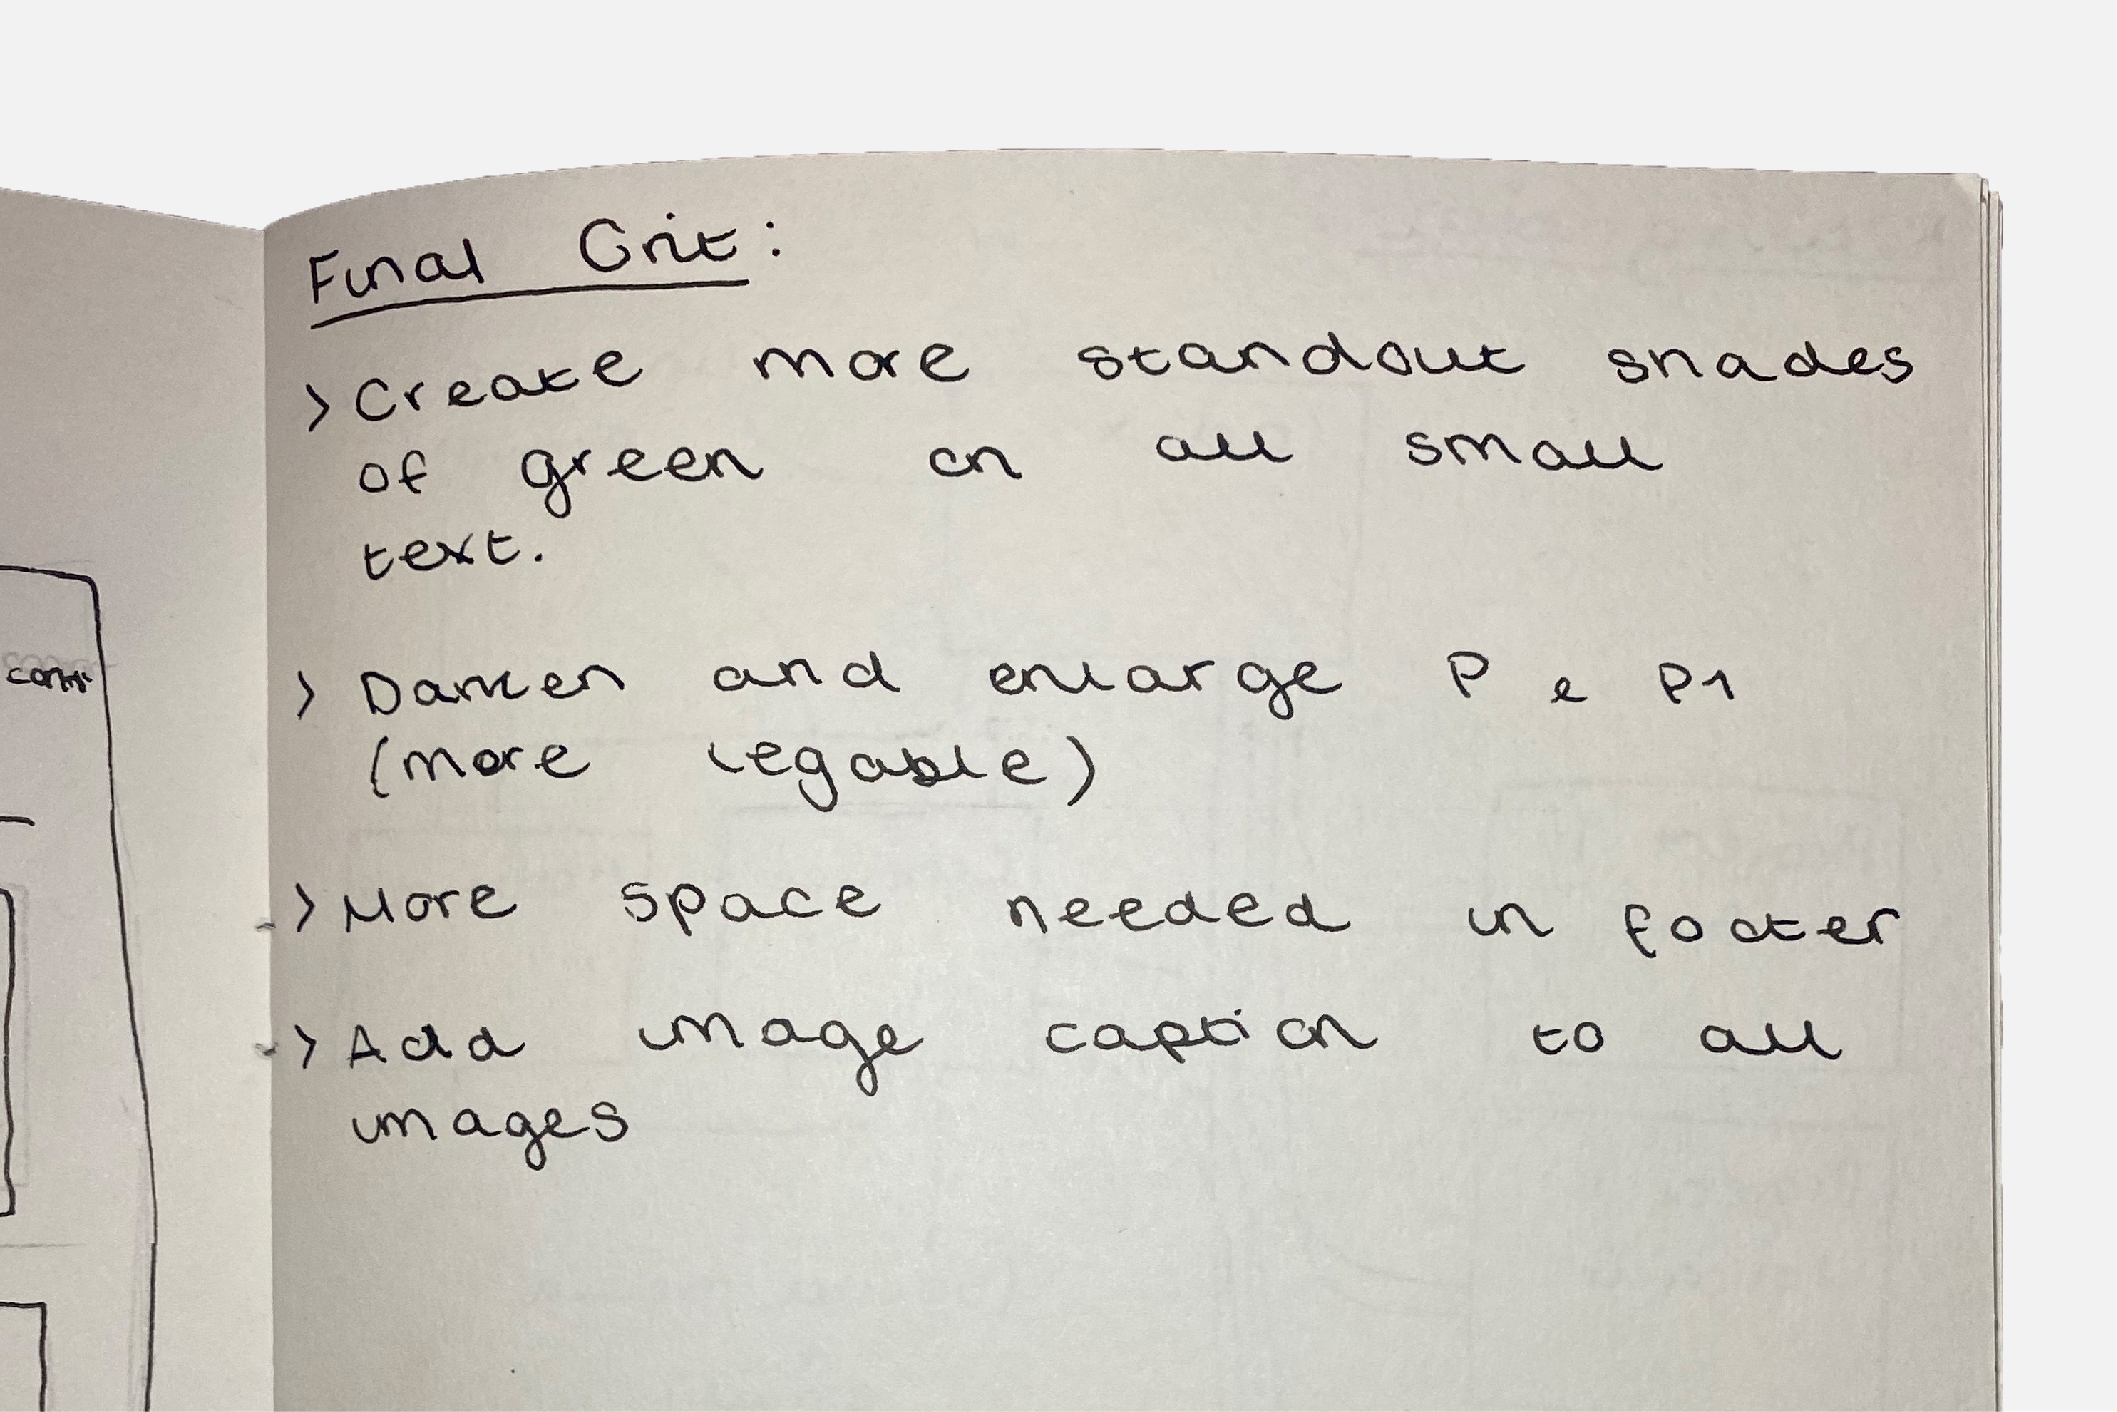 Final Crit:
> Create more standout shades
of green on all small
text.
> Darken and enlarge P & P1
(more legable)
> More space needed in footer
> Add image caption to all
images